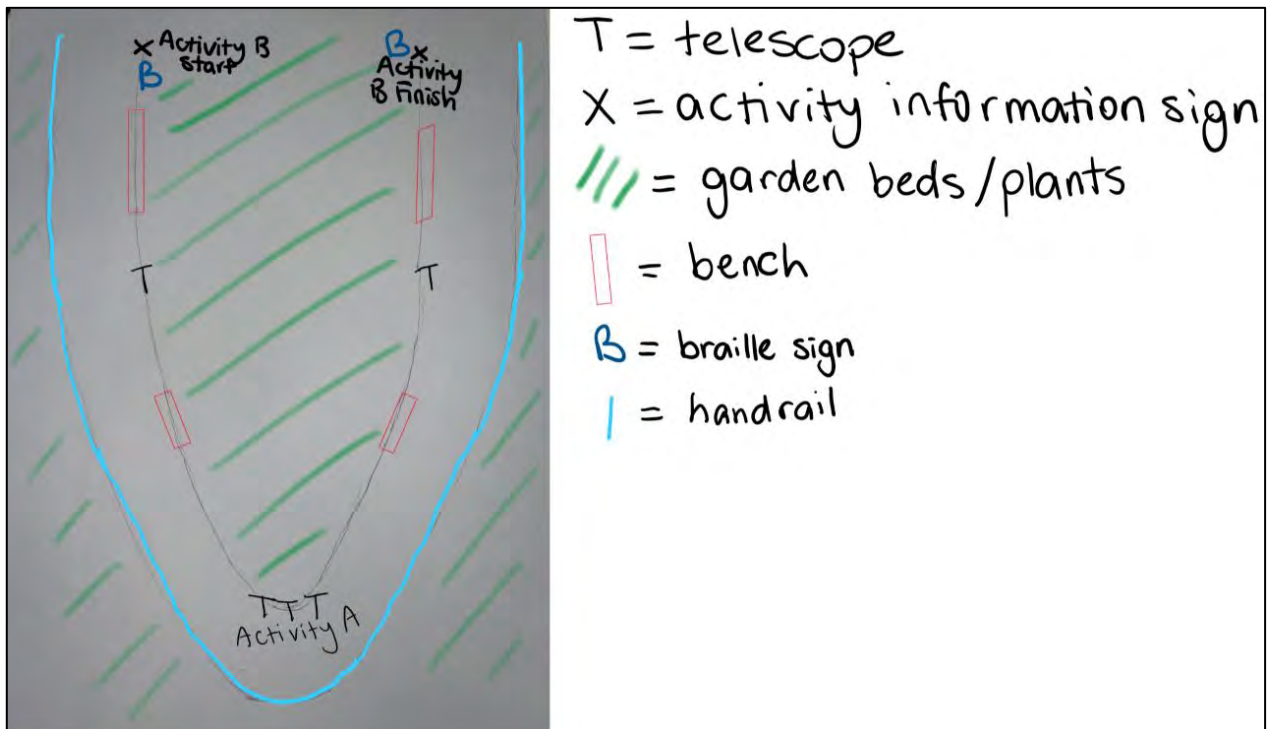 X Activity B
start
B
B X
Activity
B Finish
T
T
T T T
Activity A
T = telescope
X = activity information sign
= garden beds/plants
= bench
B = braille sign
= handrail